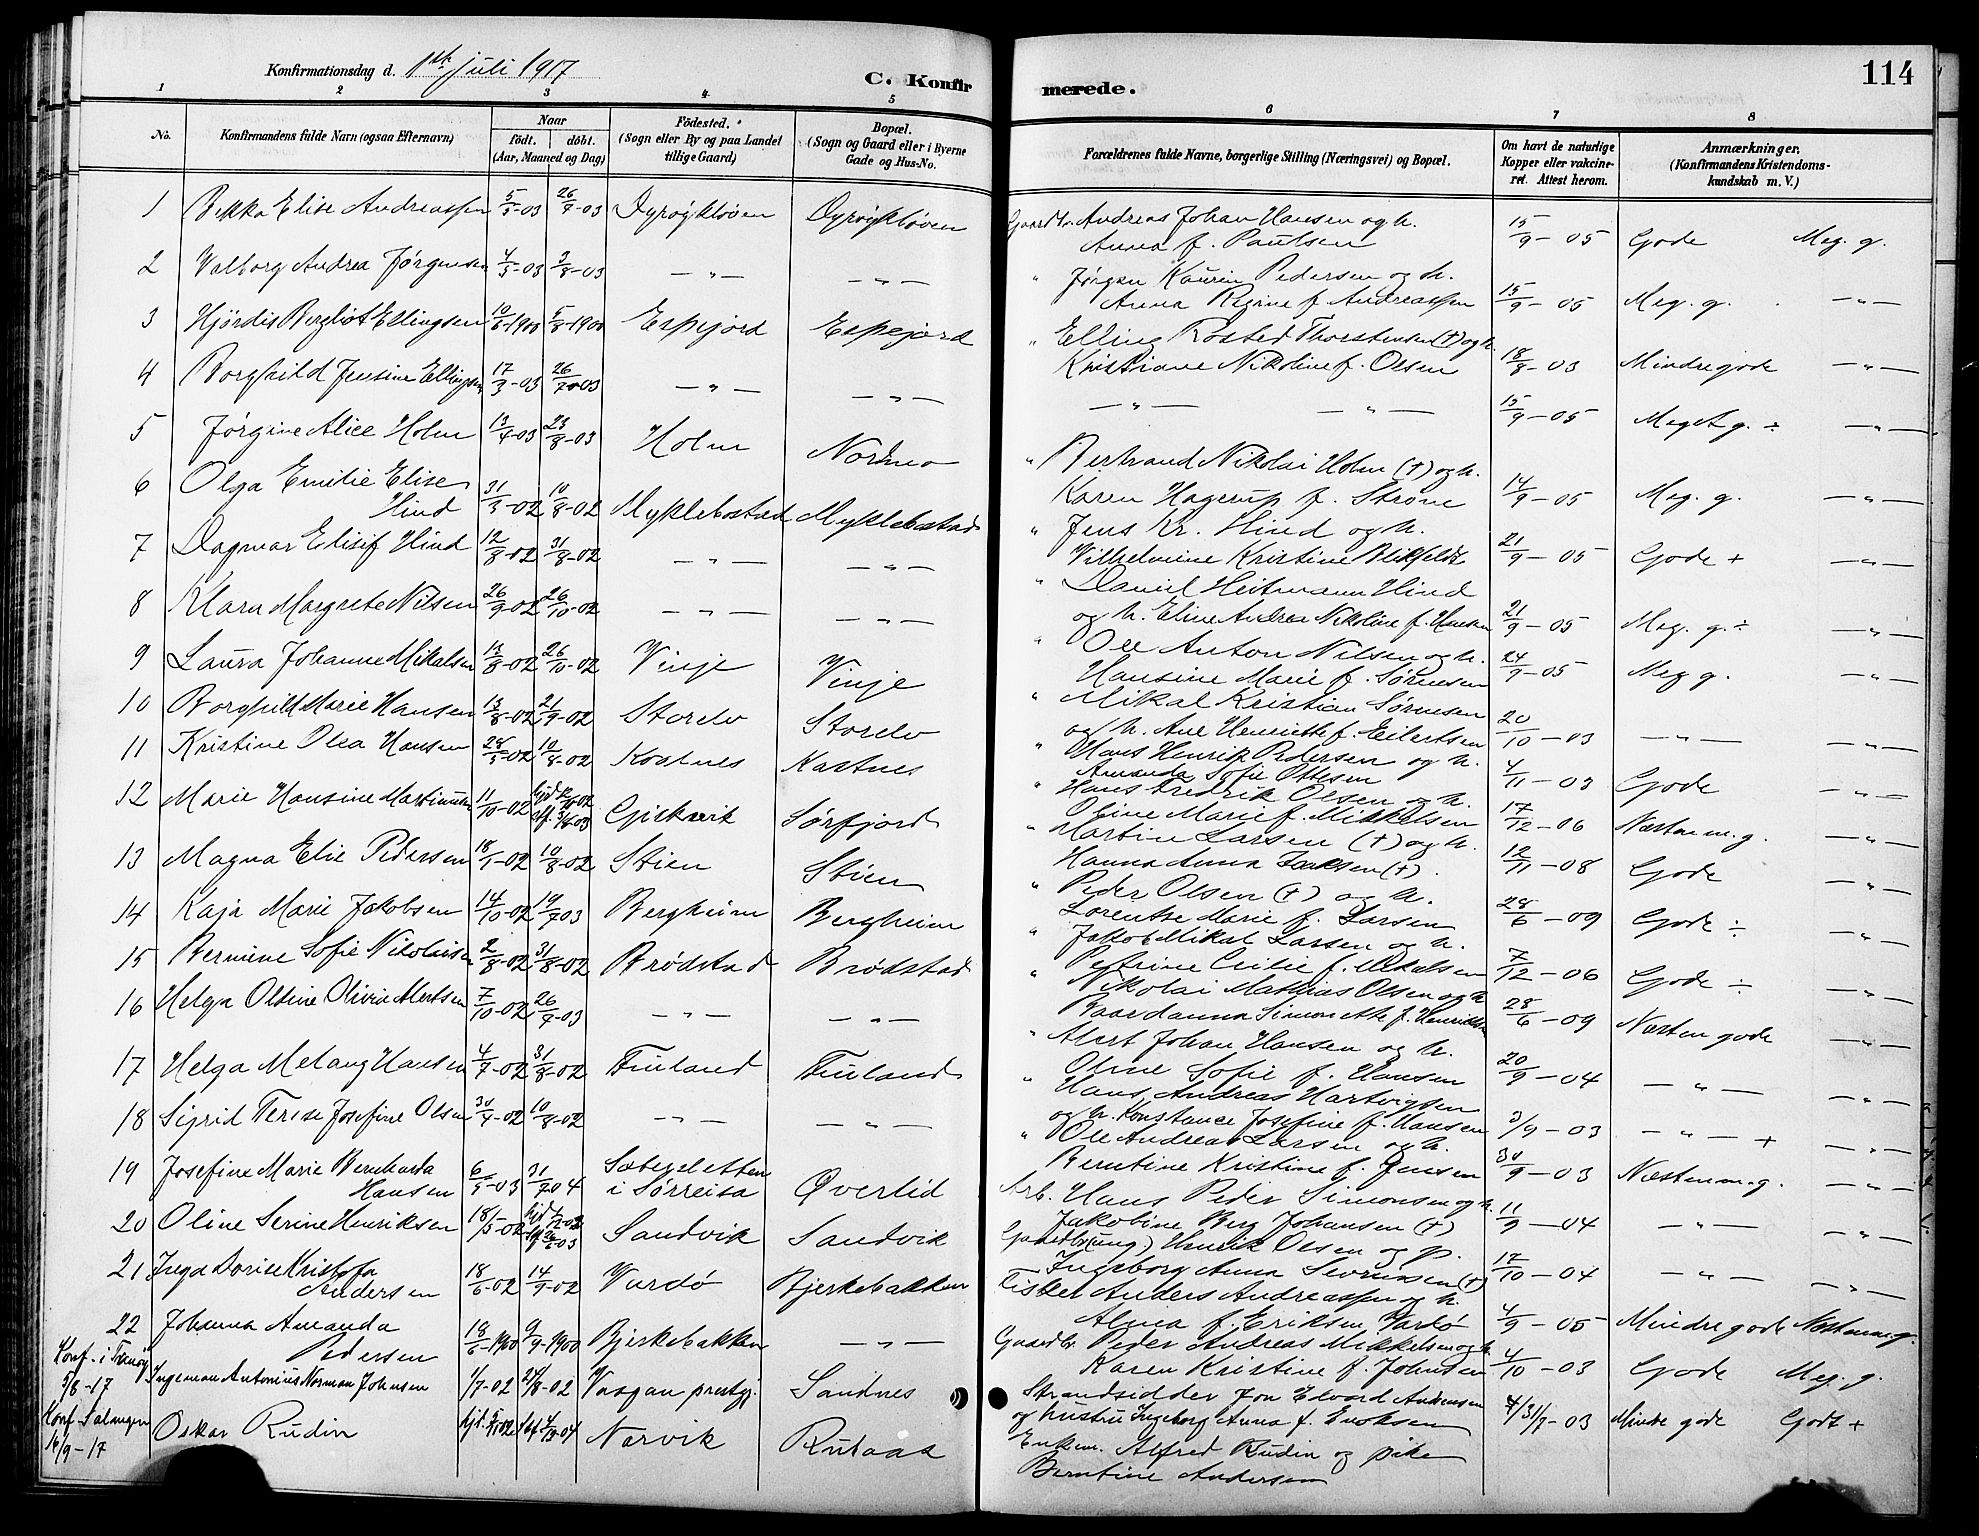 Konfirmationsdag d. 1ste juli 1917
C. Konfirmerede.
114
1 2 3 4 5 6 7 8
No.
Konfirmandens fulde Navn (ogsaa Efternavn)
Naar
födt. döbt.
(Aar, Maaned og Dag)
Födested.
(Sogn eller By og paa Landet
tillige Gaard)
Bopæl.
(Sogn og Gaard eller i Byerne
Gade og Hus-No.
Forældrenes fulde Navne, borgerlige Stilling (Næringsvei) og Bopæl.
Om havt de naturlige
Kopper eller vakcine-
ret. Attest herom.
Anmærkninger.
(Konfirmandens Kristendoms-
kundskab m. V.)
1 Bekka Elise Andreassen 5/5-03 26/7-03 Dyröykløven Dyröykløven Gaardbr. Andreas Johan Hansen og h.
Anna f. Paulsen 15/9-05 Gode Meg. g.
2 Valborg Andrea Jørgensen 4/5-03 2/8-03 —"— —"— " Jørgen Kaurin Pedersen og h.
Anna Regine f. Andreassen 15/9-05 Meg. g. —"—
3 Hjørdis Bergliot Ellingsen 10/6-1900 5/8-1900 Espejord Espejord " Elling Rosted Thorstensen (†) og h.
Kristiane Nikoline f. Olsen 18/8-03 Mindre gode —"—
4 Borghild Jensine Ellingsen 17/3-03 26/7-03 —"— —"— —"— —"— 15/9-05 Meget g. ÷ —"—
5 Jørgine Alice Holm 13/4-03 23/8-03 Holm Nordmo " Bertrand Nikolai Holm (†) og h.
Karen Hagerup f. Strøm 14/9-05 Meg. g. —"—
6 Olga Emilie Elise
Hind 31/3-02 10/8-02 Myklebostad Myklebostad " Jens Kr. Hind og h.
Vilhelmine Kristine Blikfeldt 21/9-05 Gode + —"—
7 Dagmar Elisif Hind 12/8-02 31/8-02 —"— —"— " Daniel Heitmann Hind
og h. Eline Andrea Nikoline f. Hansen 21/9-05 Meg. g. ÷ —"—
8 Klara Margrete Nilsen 26/9-02 26/10-02 —"— —"— " Ole Anton Nilsen og h.
Hansine Marie f. Sørensen 24/9-05 Meg g. —"—
9 Laura Johanne Mikalsen 13/8-02 26/10-02 Vinje Vinje " Mikal Kristian Sørensen
og h. Ane Henriette f. Eilertsen 20/10-03 —"— —"—
10 Borghild Marie Hansen 13/8-02 21/9-02 Storelv Storelv " Hans Henrik Pedersen og h.
Amanda Sofie Ottesen 4/11-03 Gode —"—
11 Kristine Olea Hansen 28/5-02 10/8-02 Kastnes Kastnes " Hans Fredrik Olsen og h.
Oline Marie f. Mikkelsen 17/12-06 Næsten m. g. —"—
12 Marie Hansine Martinusen 11/10-02 Gjeskvit Sørfjord " Martin Larsen (†) og h.
Hanna Anna (†). 12/11-08 Gode —"—
13 Magna Elie Pedersen 18/1-02 10/8-02 Stien Stien " Peder Olsen (†) og h.
Lorentse Marie f. Larsen 28/6-09 Gode ÷ —"—
14 Kaja Marie Jakobsen 14/10-02 19/7-03 Bergheim Bergheim " Jakob Mikal Larsen og h.
Petrine Cecilie f. Mikalsen 7/12-06 Gode ÷ —"—
15 Bermine Sofie Nikolaisen 2/8-02 31/8-02 Brødstad Brødstad " Nikolai Mathias Olsen og h.
Baardanna Simonette f. Henriksen 28/6-09 Næsten gode —"—
16 Helga Oltine Olivie Mertsen 7/10-02 26/4-03 —"— —"— " Mert Johan Hansen og h.
Oline Sofie f. Hansen 20/9-04 —"— —"—
17 Helga Melang Hansen 4/7-02 31/8-02 Finland Finland " Hans Andreas Hartvigsen
og h. Konstance Josefine f. Hansen 3/9-03 —"— + —"—
18 Sigrid Terese Josefine Olsen 30/4-02 10/8-02 —"— —"— " Ole Andreas Larsen og h.
Berntine Kristine f. Jensen 30/9-03 Næsten m. g. —"—
19 Josefine Marie Bernharda
Hansen 6/5-03 31/7-04 Sætersletten
i Sørreisa Øverlid Arb. Hans Peder Simonsen og h.
Jakobine Berg Johansen (†) 11/9-04 —"— —"—
20 Oline Serine Henriksen 18/5-02 Sandvik Sandvik Gaardbr (ung.) Henrik Olsen og p.
Ingeborg Anna (†) 17/10-04 —"— —"—
21 Inga Dorice Kristofa
Andersen 18/6-02 14/9-02 Vardö Bjerkebakken Fisker Anders Andreassen og h.
Alma f. Eriksen, Vardø 4/9-05 Mindre gode Næsten m. g.
22 Johanna Amanda
Pedersen 18/6-1900 9/9-1900 Bjerkebakken —"— Gaardbr. Peder Andreas Mikkelsen og h.
Karen Kristine f. Johnsen 4/10-03 Gode Meg. g.
Konf. i Tranöy
5/8-17 Ingeman Antonius Norman Johnsen 1/7-02 24/8-02 Sandnes Strandsidder Jon Edvard Andreasen
og hustru Ingeborg Anna f. Eriksen 31/7-03 Mindre gode Godt +
Konf. Salangen
16/9-17 Oskar Rudin Narvik Rutaas Enkem. Alfred Rudin og pike
Berntine Andersen